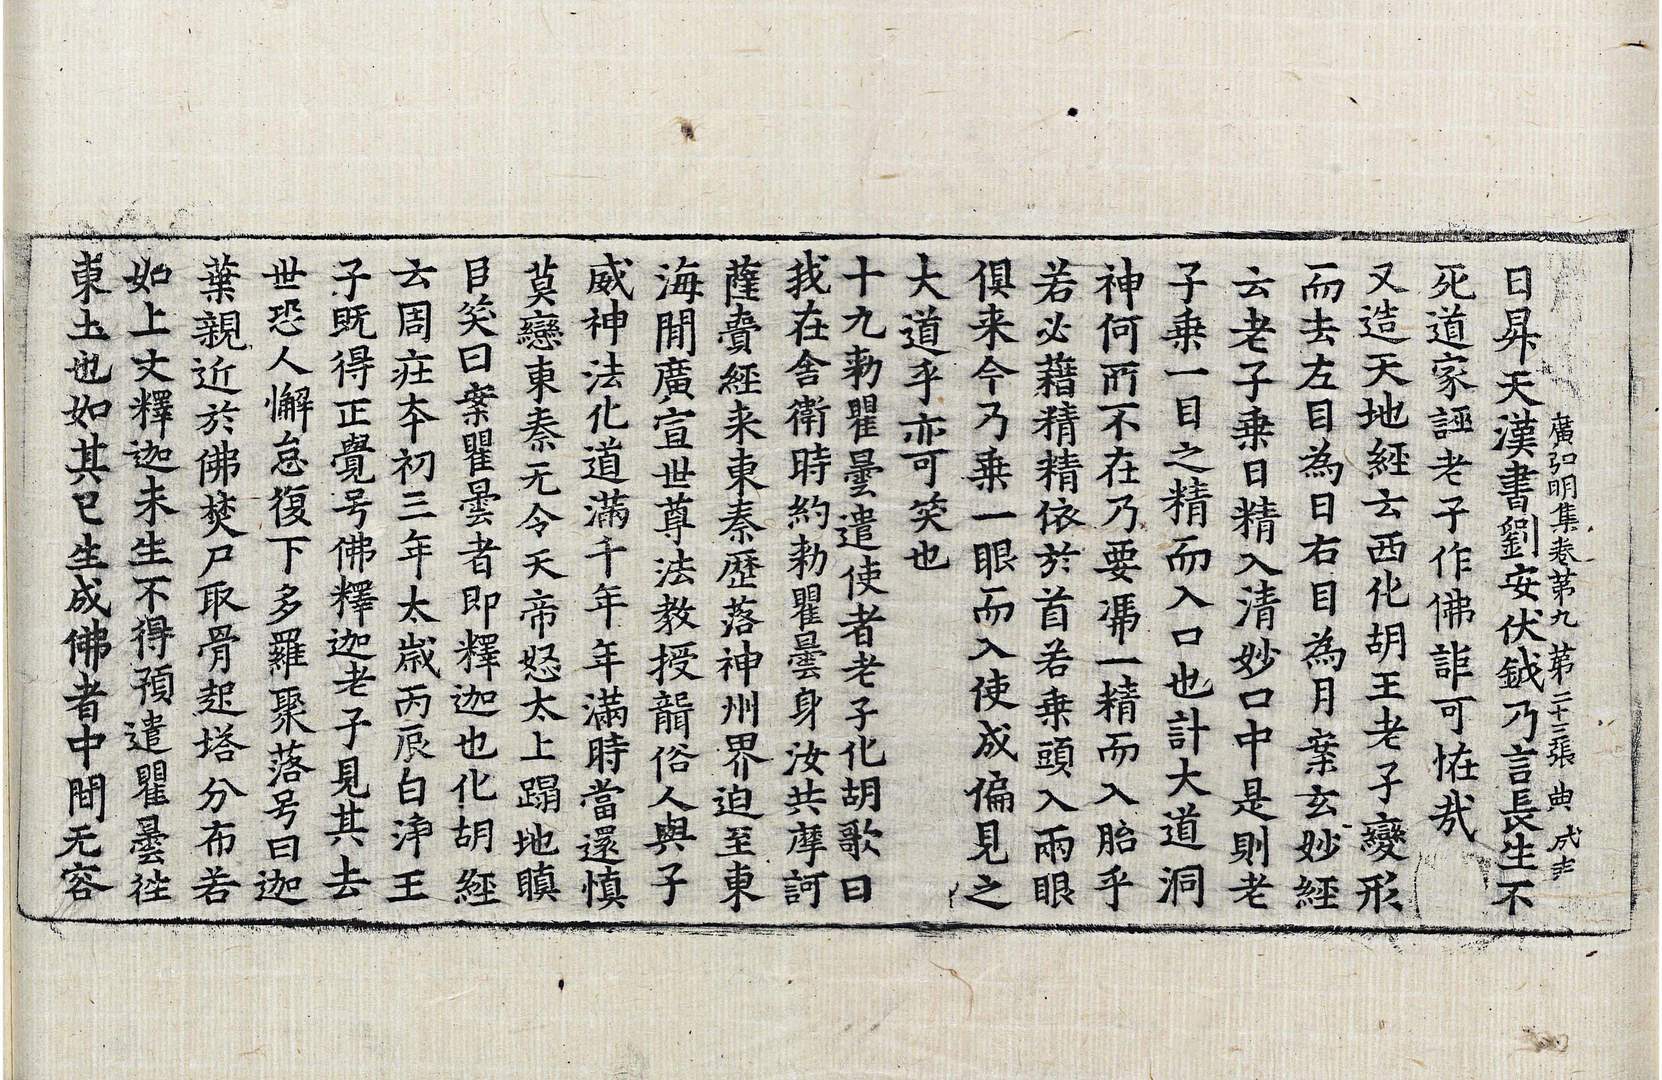 日昇天漢書劉安伏鉞乃言長生不
廣弘明集卷第九 第二十三張 典
死道家誣老子作佛詎可恠哉
又造天地經云西化胡王老子變形
而去左目為日右目為月案玄妙經
云老子乗日精入清妙口中是則老
子乗一目之精而入口也計大道洞
神何所不在乃要馮一精而入胎乎
若必藉精精依於首若乗頭入兩眼
俱来今乃乗一眼而入使成偏見之
大道乎亦可笑也
十九勑瞿曇遣使者老子化胡歌曰
我在舍衛時約勑瞿曇身汝共摩訶
薩賷經来東秦歷落神州界迫至東
海間廣宣世尊法教授聾俗人與子
威神法化道滿千年年滿時當還慎
莫戀東秦无令天帝怒太上蹋地瞋
臣笑曰案瞿曇者即釋迦也化胡經
云周莊夲初三年太歲丙辰白淨王
子既得正覺号佛釋迦老子見其去
世恐人懈怠復下多羅聚落号曰迦
葉親近於佛焚尸取骨起塔分布若
如上文釋迦未生不得預遣瞿曇徃
東土也如其已生成佛者中間无容